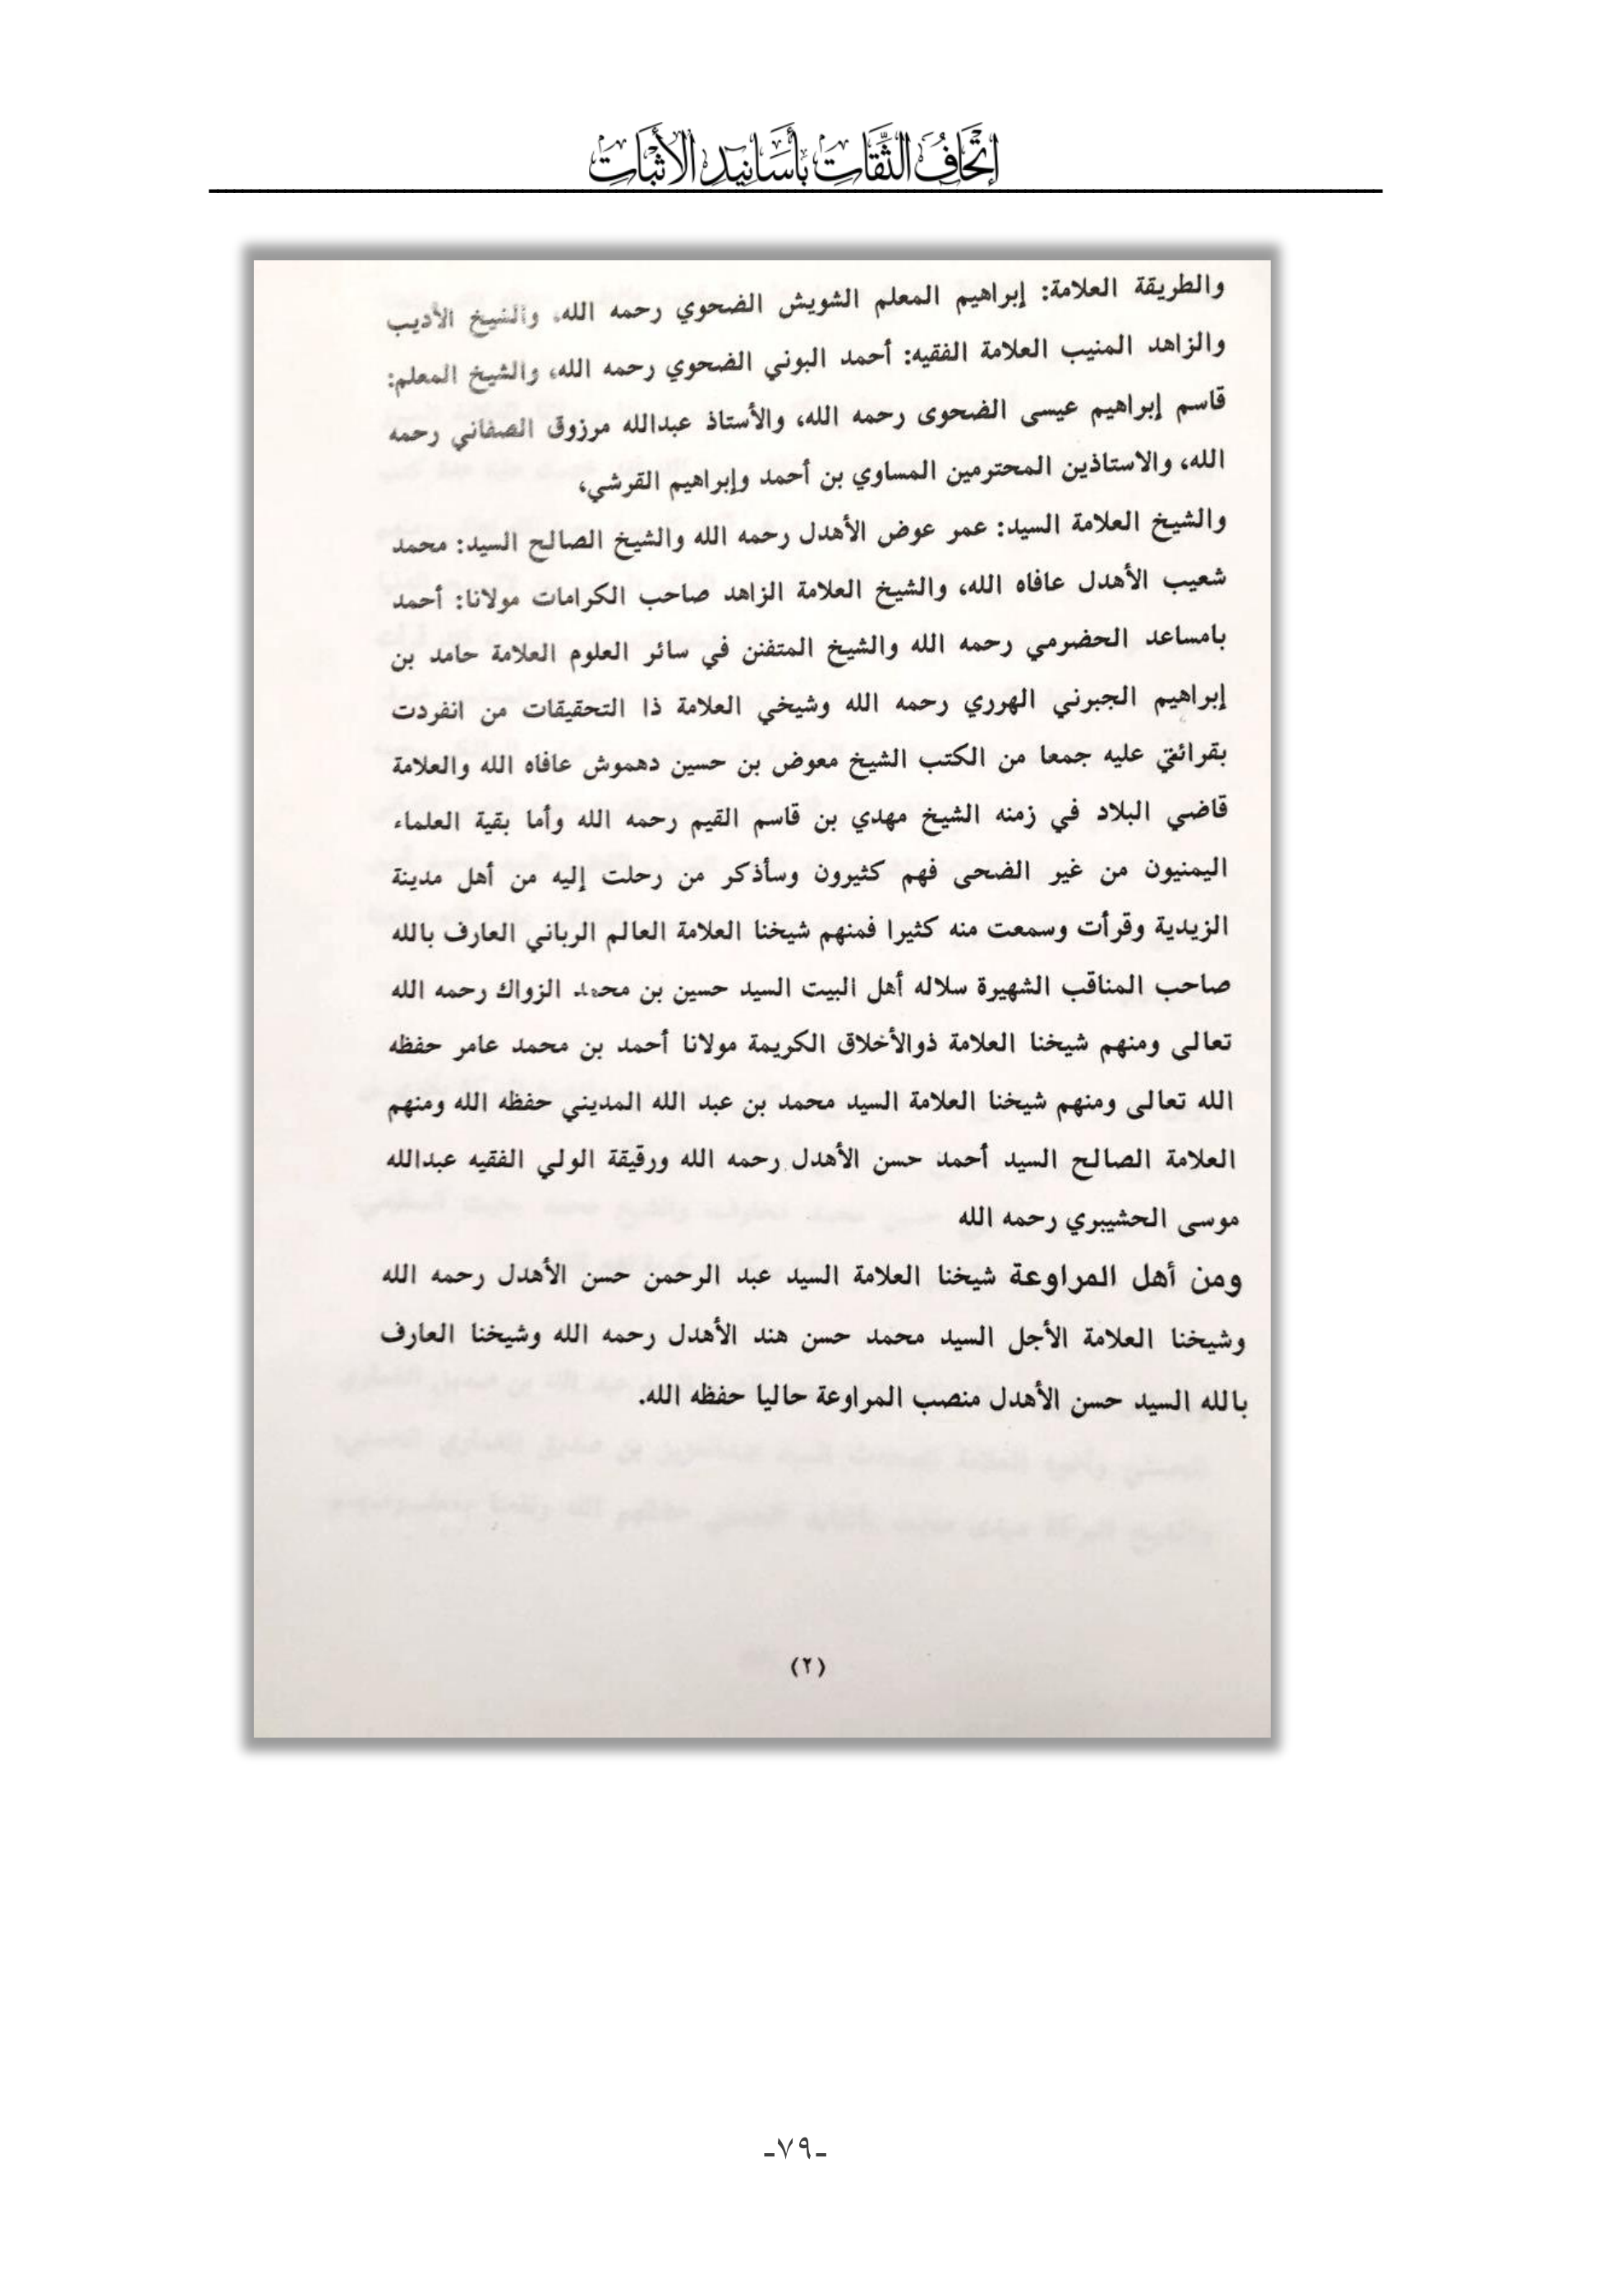 إتحاف الثقات بأسانيد الأثبات
والطريقة العلامة: إبراهيم المعلم الشويش الضحوي رحمه الله، والشيخ الأديب
والزاهد المنيب العلامة الفقيه: أحمد البوني الضحوي رحمه الله، والشيخ المعلم:
قاسم إبراهيم عيسى الضحوى رحمه الله، والأستاذ عبدالله مرزوق الصفاني رحمه
الله، والاستاذين المحترمين المساوي بن أحمد وإبراهيم القرشي،
والشيخ العلامة السيد: عمر عوض الأهدل رحمه الله والشيخ الصالح السيد: محمد
شعيب الأهدل عافاه الله، والشيخ العلامة الزاهد صاحب الكرامات مولانا: أحمد
بامساعد الحضرمي رحمه الله والشيخ المتفنن في سائر العلوم العلامة حامد بن
إبراهيم الجبرني الهرري رحمه الله وشيخي العلامة ذا التحقيقات من انفردت
بقرائتي عليه جمعا من الكتب الشيخ معوض بن حسين دهموش عافاه الله والعلامة
قاضي البلاد في زمنه الشيخ مهدي بن قاسم القيم رحمه الله وأما بقية العلماء
اليمنيون من غير الضحى فهم كثيرون وسأذكر من رحلت إليه من أهل مدينة
الزيدية وقرأت وسمعت منه كثيرا فمنهم شيخنا العلامة العالم الرباني العارف بالله
صاحب المناقب الشهيرة سلاله أهل البيت السيد حسين بن محمد الزواك رحمه الله
تعالى ومنهم شيخنا العلامة ذوالأخلاق الكريمة مولانا أحمد بن محمد عامر حفظه
الله تعالى ومنهم شيخنا العلامة السيد محمد بن عبد الله المديني حفظه الله ومنهم
العلامة الصالح السيد أحمد حسن الأهدل رحمه الله ورقيقة الولي الفقيه عبدالله
موسى الحشيبري رحمه الله
ومن أهل المراوعة شيخنا العلامة السيد عبد الرحمن حسن الأهدل رحمه الله
وشيخنا العلامة الأجل السيد محمد حسن هند الأهدل رحمه الله وشيخنا العارف
بالله السيد حسن الأهدل منصب المراوعة حاليا حفظه الله.
(٢)
-٧٩-